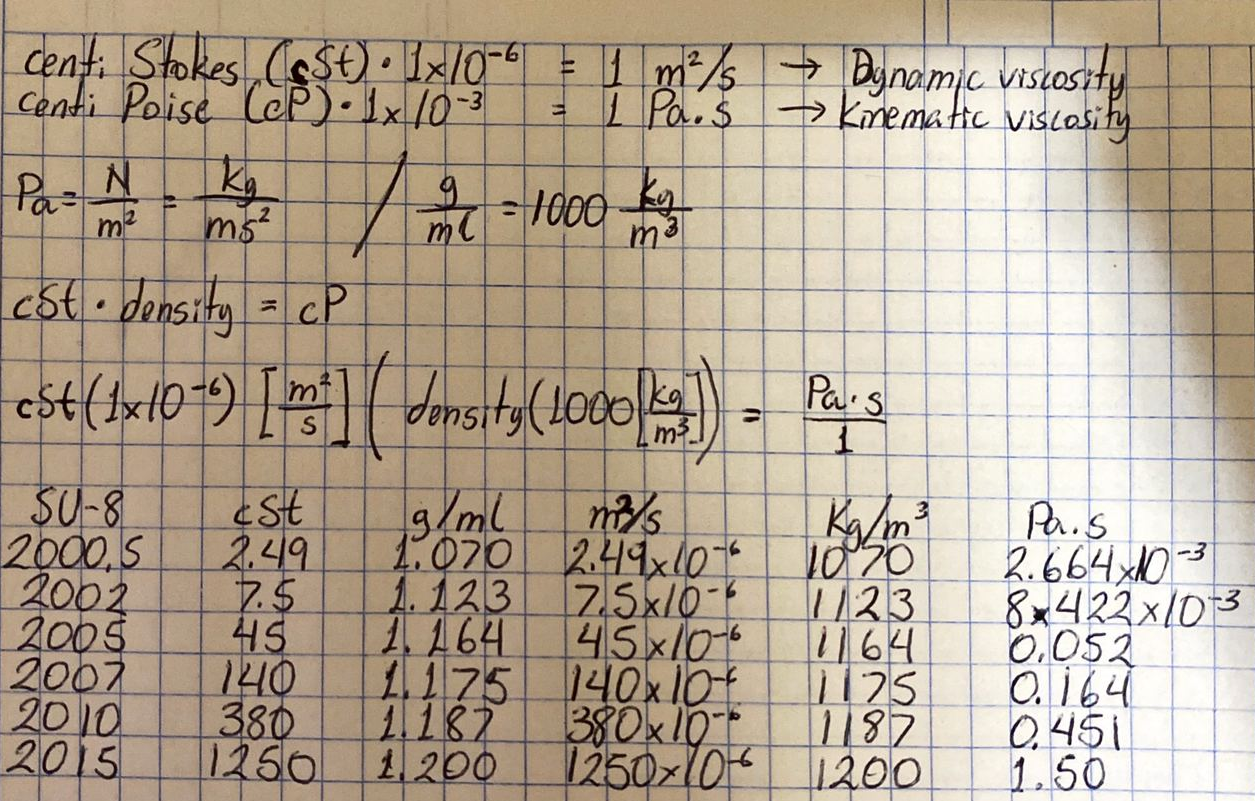 centi Stokes (cSt) · 1x10⁻⁶ = 1 m²/s → Dynamic viscosity
centi Poise (cP) · 1x10⁻³ = 1 Pa.s → Kinematic viscosity
Pa = N/m² = kg/ms² / g/ml = 1000 kg/m³
cSt · density = cP
cSt (1x10⁻⁶) [m²/s] (density (1000 [kg/m³])) = Pa·s/1
SU-8 cSt g/ml m²/s Kg/m³ Pa.s
2000.5 2.49 1.070 2.49x10⁻⁶ 1070 2.664x10⁻³
2002 7.5 1.123 7.5x10⁻⁶ 1123 8x422x10⁻³
2005 45 1.164 45x10⁻⁶ 1164 0.052
2007 140 1.175 140x10⁻⁶ 1175 0.164
2010 380 1.187 380x10⁻⁶ 1187 0.451
2015 1250 1.200 1250x10⁻⁶ 1200 1.50